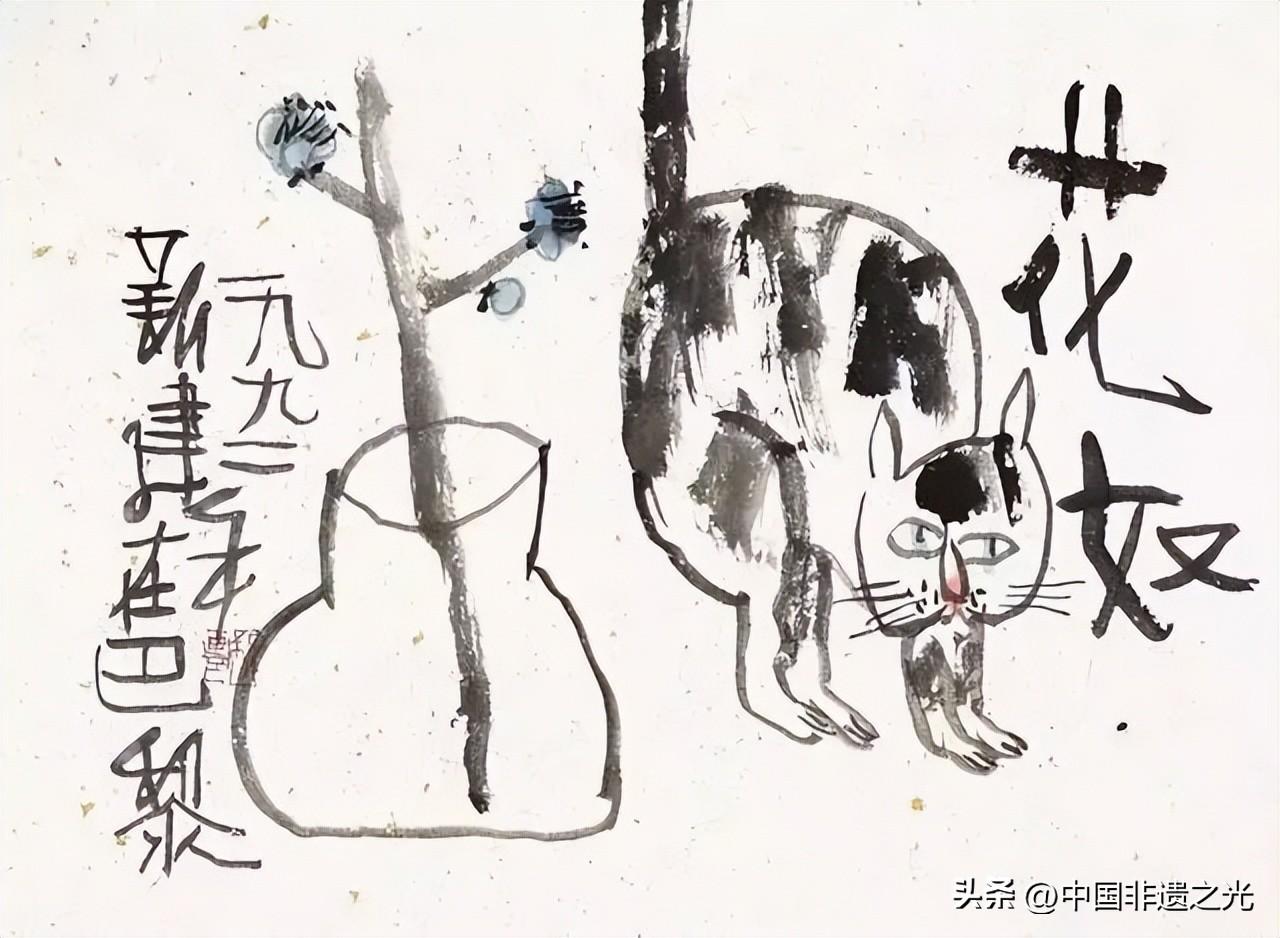 花奴
一九九二年
新建在巴黎
头条 @中国非遗之光